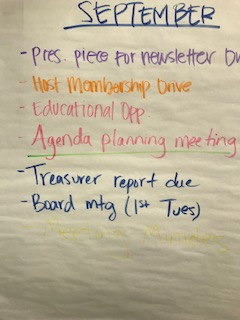 SEPTEMBER
- Pres. piece for newsletter
- Host Membership Drive
- Educational Opp
- Agenda planning meeting
- Treasurer report due
- Board mtg (1st Tues)